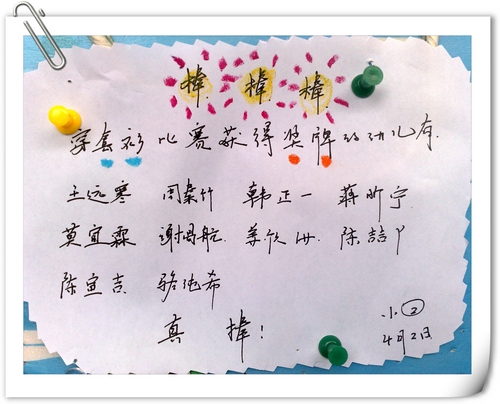 棒 棒 棒
穿套衫比赛获得奖牌的幼儿有
王远寒 周 韩正一 蒋昕宁
莫宜霖 谢 航 姜欣 陈喆
陈宣吉 骆 希
真 棒！
小②
4月2日